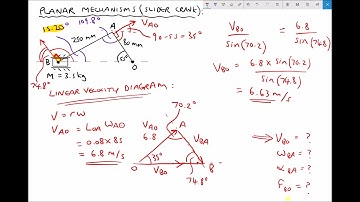 PLANAR MECHANISMS (SLIDER CRANK).
15.20°
109.8°
A
VAO
250 mm
80 mm
90-55 = 35°
55°
B
O
M = 3.5kg
74.8°
LINEAR VELOCITY DIAGRAM:
V = rω
VAO = LOA ωAO
= 0.08 × 85
= 6.8 m/s
70.2°
A
VAO
6.8
VBA
35°
O
VBO
B
74.8°
VBO = 6.8
sin(70.2) sin(74.8)
VBO = 6.8 × sin(70.2)
sin(74.8)
= 6.63 m/s
VBO = ?
ωBA = ?
αBA = ?
FBO = ?